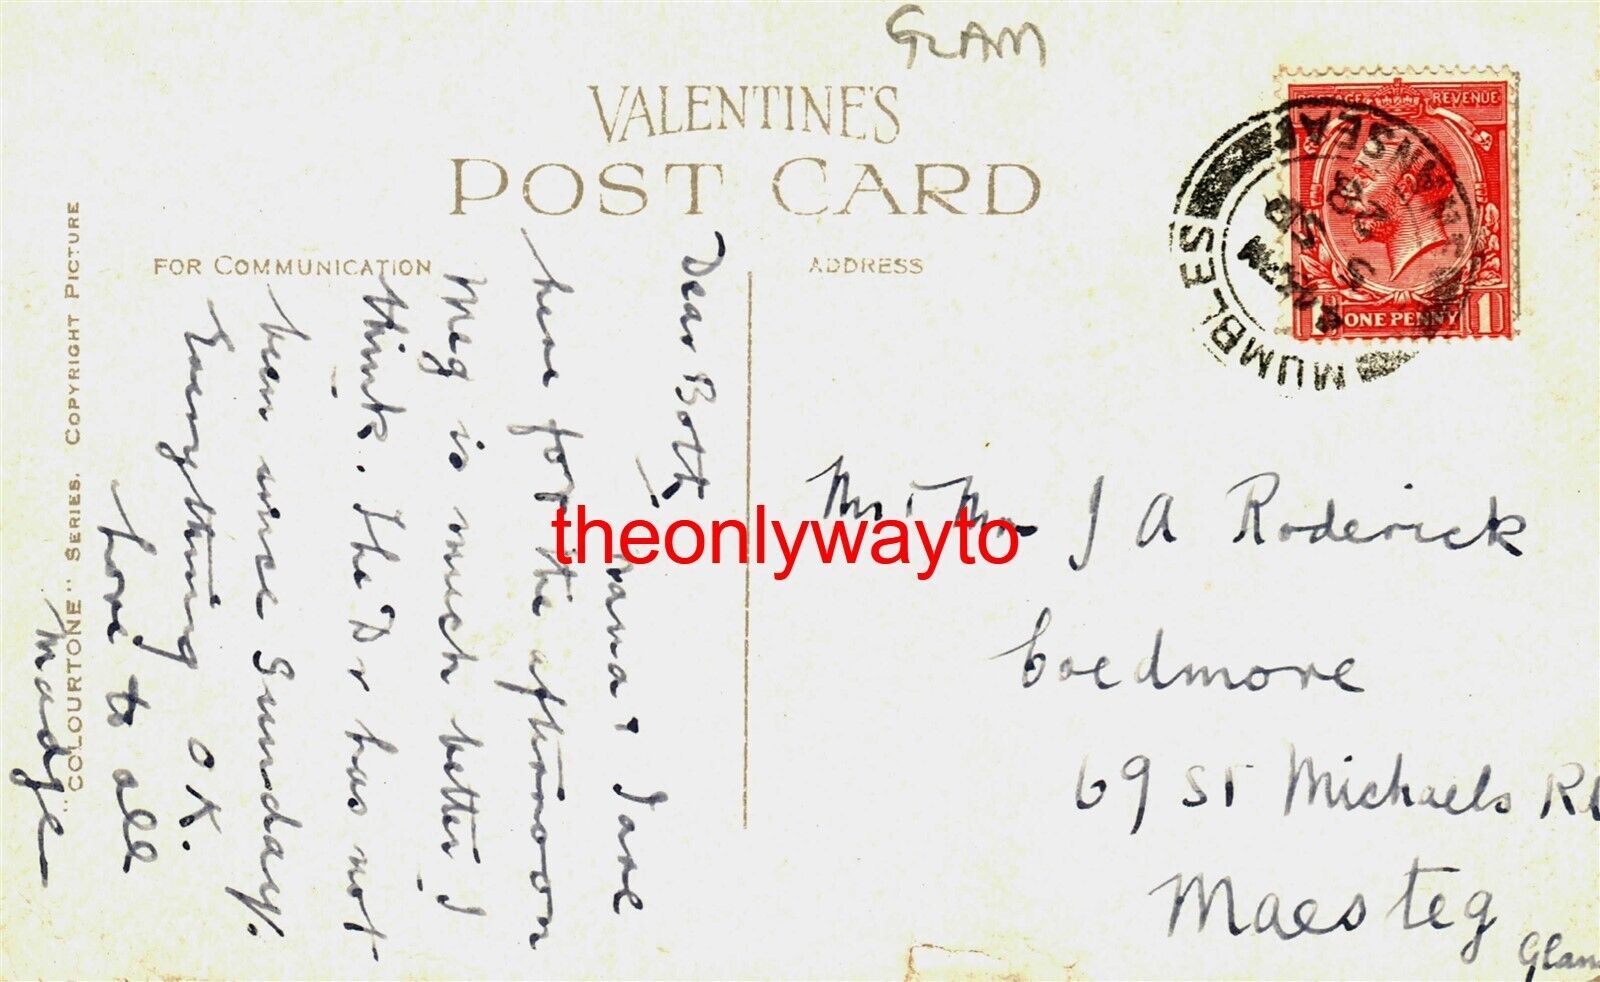 GLAM
VALENTINE'S
POST CARD
FOR COMMUNICATION
ADDRESS
"COLOURTONE" SERIES. COPYRIGHT PICTURE
Dear Both
& Jane
here for the afternoon
Meg is much better I
think. The Dr has not
been since Sunday.
Everything OK.
Love to all
Madge
POSTAGE REVENUE
1 ONE PENNY 1
MUMBLES
SWANSEA
Mr & Mrs J A Roderick
Coedmore
69 St Michaels Rd
Maesteg
Glam
theonlywayto